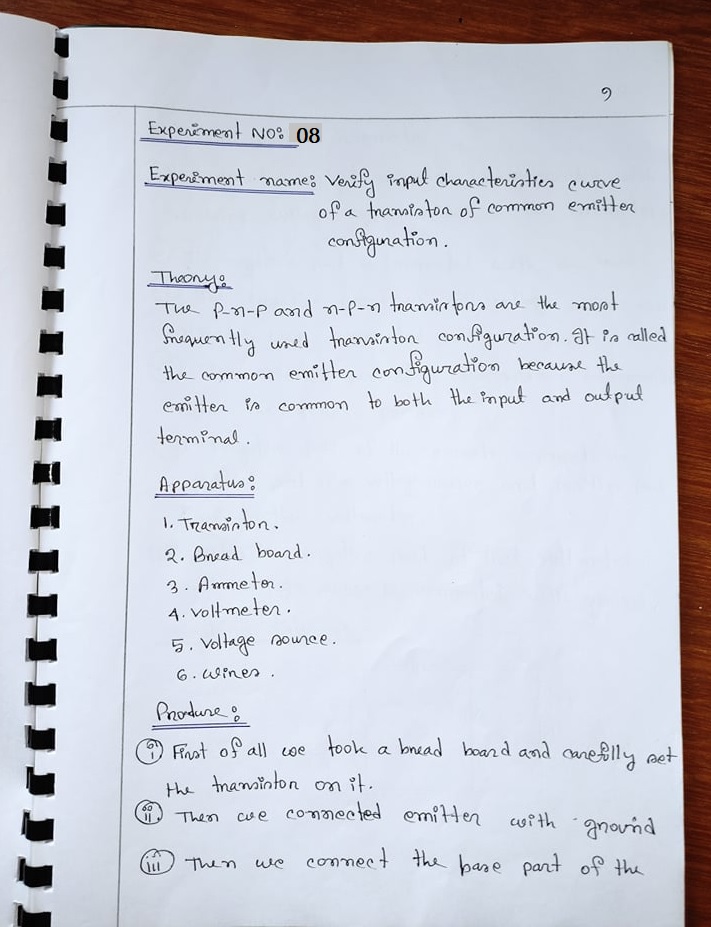 9
Experiment NO: 08
Experiment name: Verify input characteristics curve
of a transistor of common emitter
configuration.
Theory:
The P-n-P and n-P-n transistors are the most
frequently used transistor configuration. It is called
the common emitter configuration because the
emitter is common to both the input and output
terminal.
Apparatus:
1. Transistor.
2. Bread board.
3. Ammeter.
4. Voltmeter.
5. Voltage source.
6. Wires.
Produre:
i First of all we took a bread board and carefully set
the transistor on it.
ii. Then we connected emitter with ground
iii Then we connect the base part of the